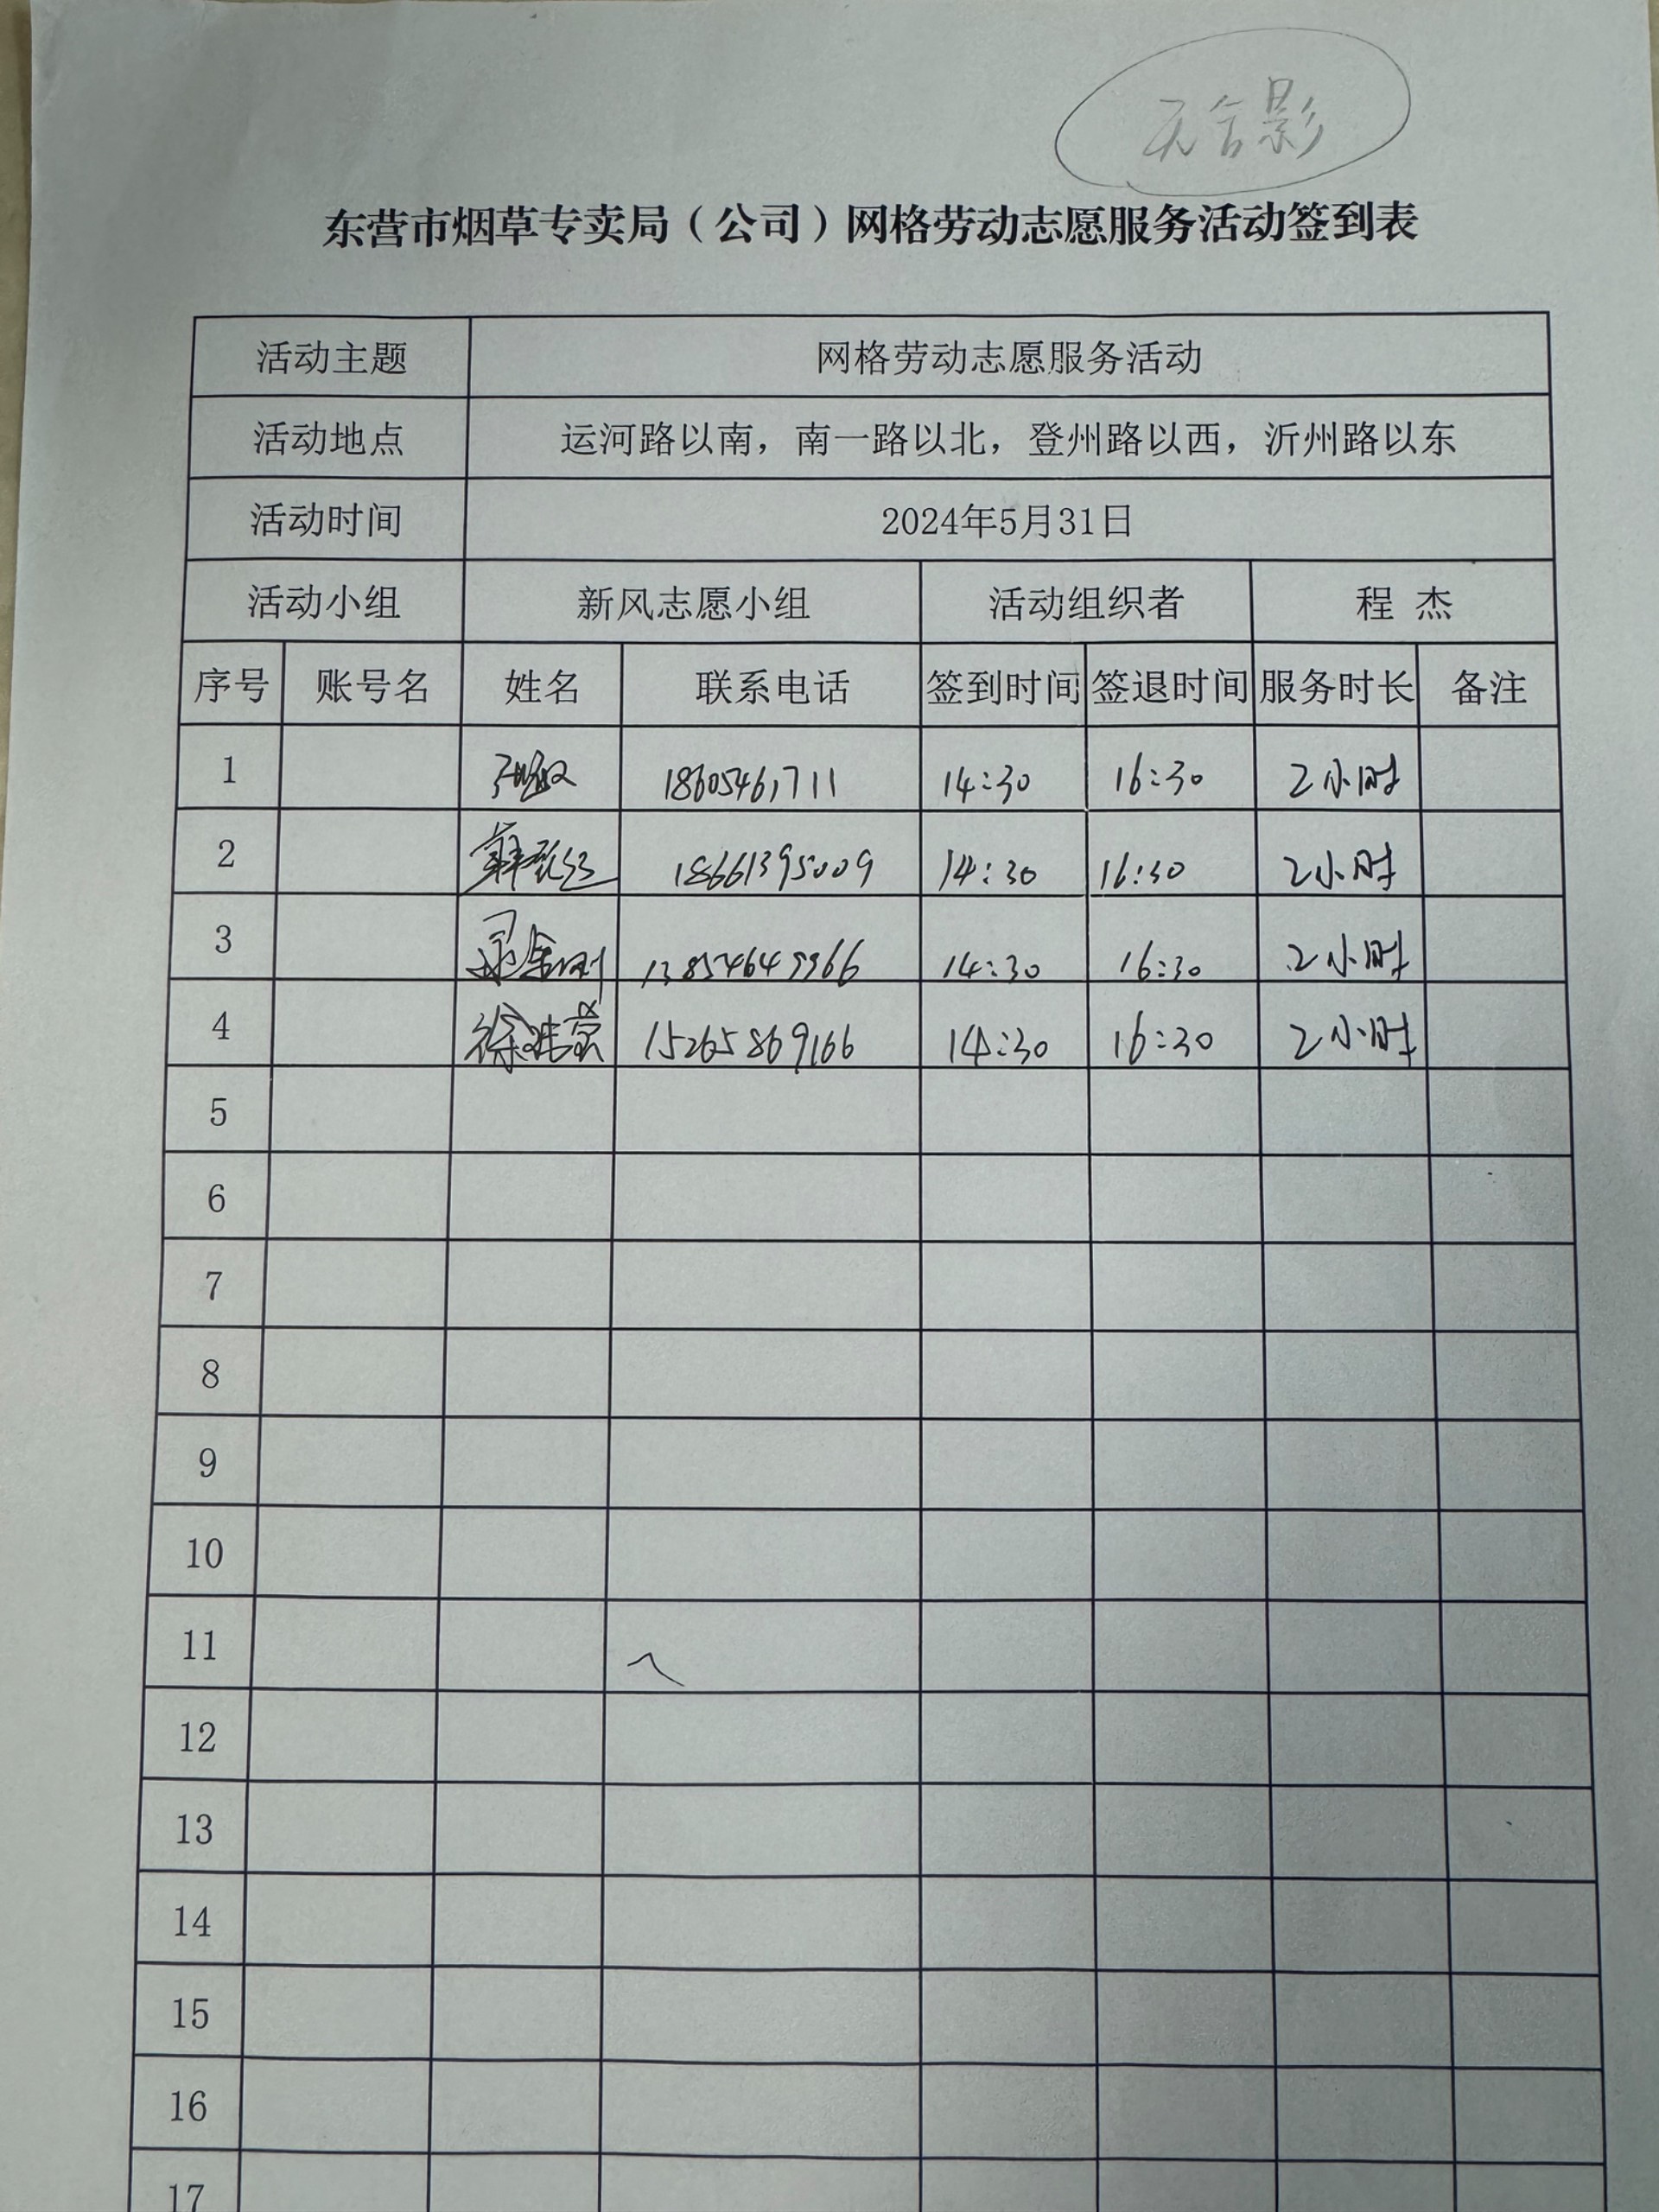 无合影
东营市烟草专卖局（公司）网格劳动志愿服务活动签到表
活动主题 网格劳动志愿服务活动
活动地点 运河路以南，南一路以北，登州路以西，沂州路以东
活动时间 2024年5月31日
活动小组 新风志愿小组 活动组织者 程 杰
序号 账号名 姓名 联系电话 签到时间 签退时间 服务时长 备注
1 18605461711 14:30 16:30 2小时
2 18661395009 14:30 16:30 2小时
3 14:30 16:30 2小时
4 15265869166 14:30 16:30 2小时
5
6
7
8
9
10
11
12
13
14
15
16
17